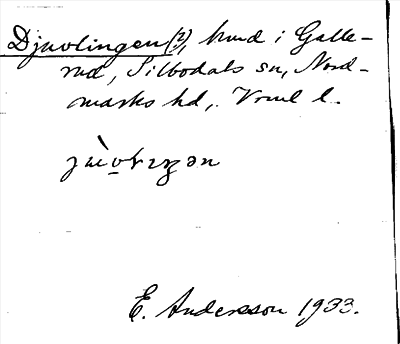 Djuvlingen(?), hund i Galle-
rud, Silbodals sn, Nord-
marks hd, Vrml l.
E. Andersson 1933.